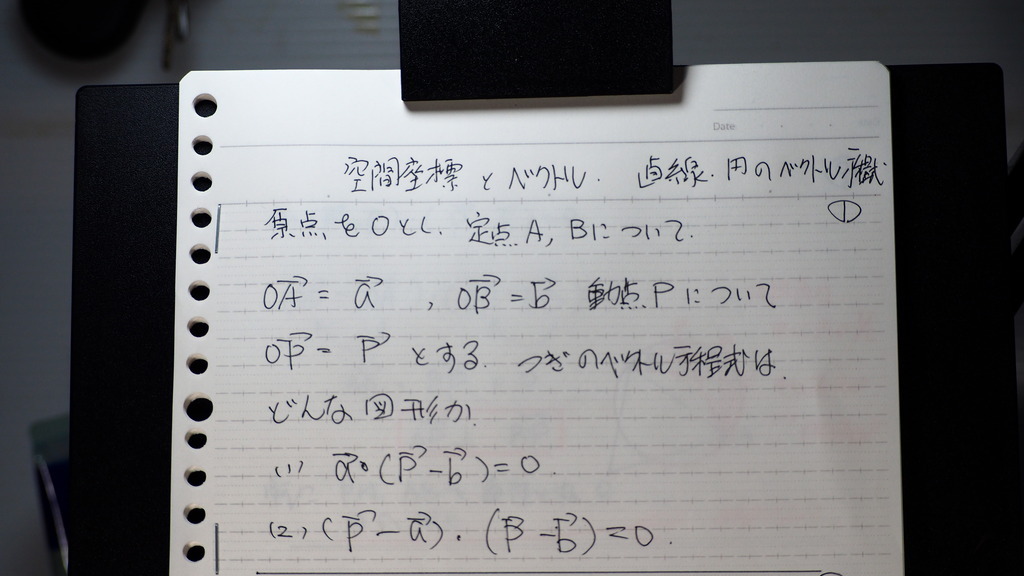 Date
空間座標とベクトル. 直線.円のベクトル方程式
①
原点をOとし. 定点A, Bについて.
OA→ = a→ , OB→ = b→ 動点Pについて
OP→ = P→ とする. つぎのベクトル方程式は.
どんな図形か.
(1) a→・(P→ - b→) = 0.
(2) (P→ - a→)・(P→ - b→) = 0.